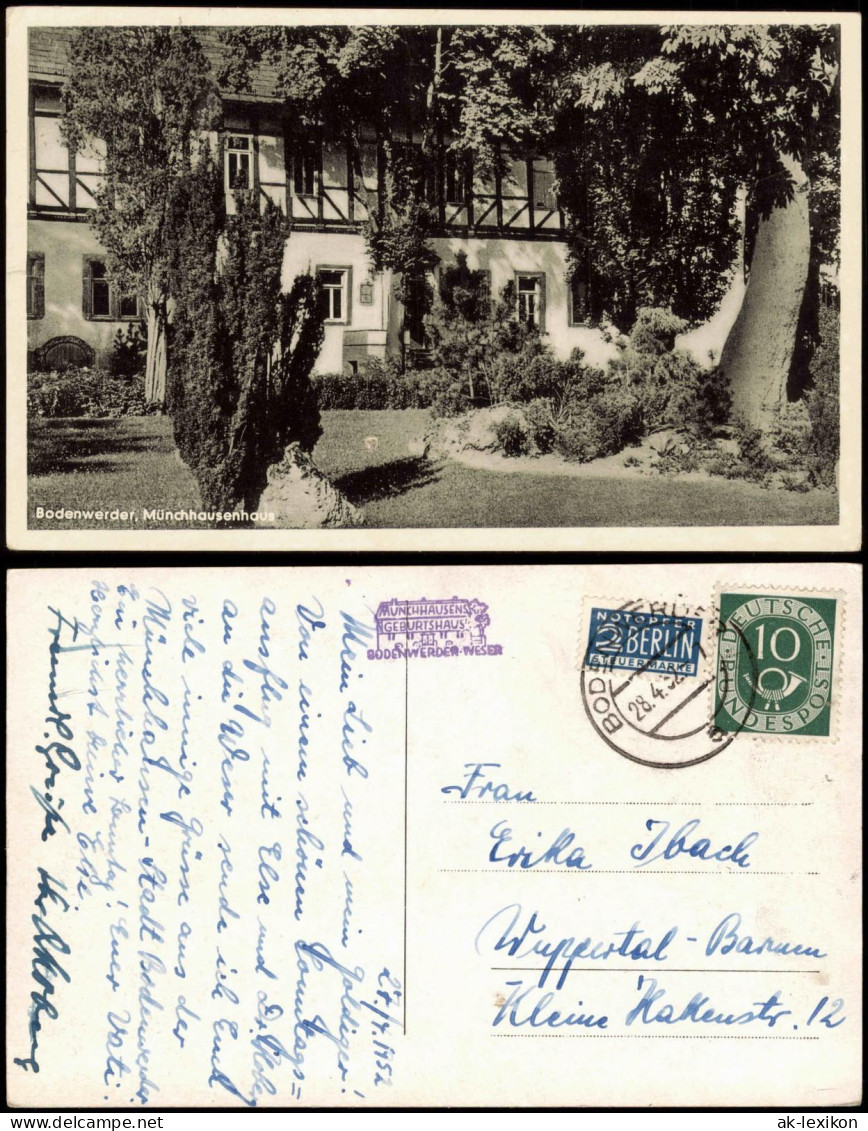 Bodenwerder, Münchhausenhaus
MÜNCHHAUSENS
GEBURTSHAUS
BODENWERDER-WESER
NOTOPFER
2 BERLIN
STEUERMARKE
BODENWERDER
28.4.52
a
DEUTSCHE
10
BUNDESPOST
27/4.1952
Mein Lieb und mein Goldiger!
Von einem schönen Sonntags=
ausflug mit Else und Dr.
an die Weser sende ich Euch
viele innige Grüsse aus der
Münchhausen-Stadt Bodenwerder.
Ein herrlicher Sonntag! Euer Vati.
Herzlichst Deine Else
Frau
Erika Ibach
Wuppertal-Barmen
Kleine Hakenstr. 12
ak-lexikon